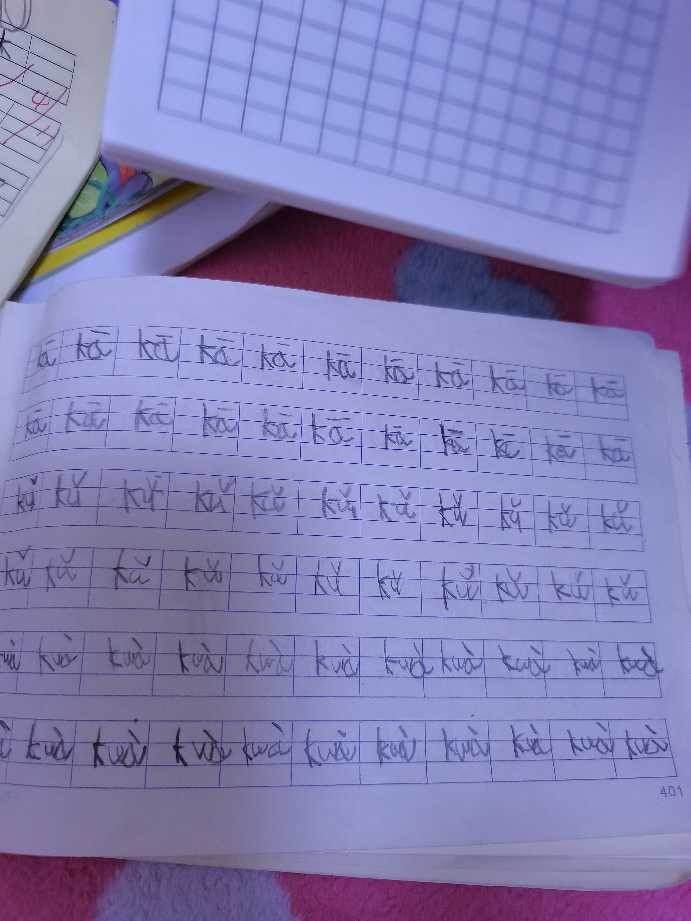 ā kā kā kā kā kā kā kā kā kā kā
kā kā kā kā kā kā kā kā kā kā kā
kǔ kǔ kǔ kǔ kǔ kǔ kǔ kǔ kǔ kǔ kǔ
kǔ kǔ kǔ kǔ kǔ kǔ kǔ kǔ kǔ kǔ kǔ
kuà kuà kuà kuà kuà kuà kuà kuà kuà kuà
kuà kuà kuà kuà kuà kuà kuà kuà kuà kuà
401